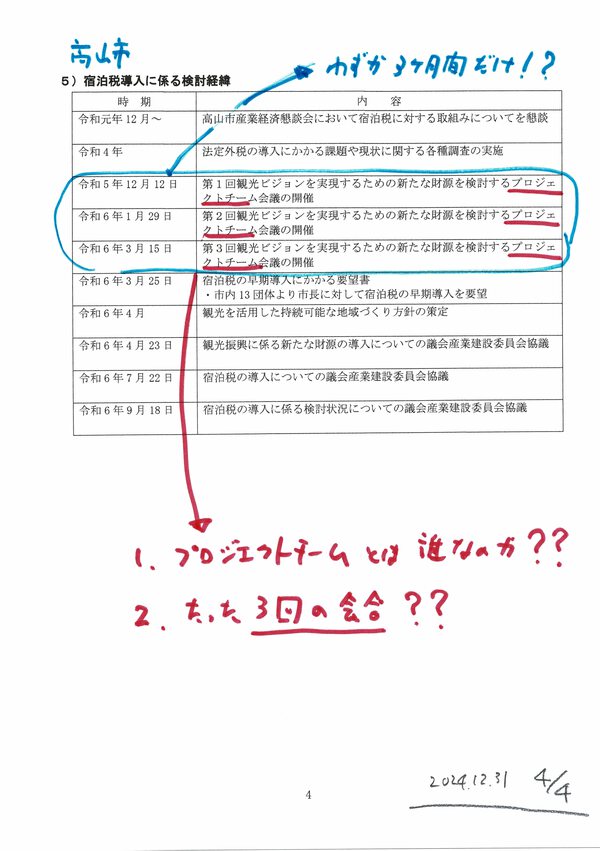 高山市
わずか3ヶ月間だけ!?
5）宿泊税導入に係る検討経緯
時 期 内 容
令和元年12月～ 高山市産業経済懇談会において宿泊税に対する取組みについてを懇談
令和4年 法定外税の導入にかかる課題や現状に関する各種調査の実施
令和5年12月12日 第1回観光ビジョンを実現するための新たな財源を検討するプロジェ
クトチーム会議の開催
令和6年1月29日 第2回観光ビジョンを実現するための新たな財源を検討するプロジェ
クトチーム会議の開催
令和6年3月15日 第3回観光ビジョンを実現するための新たな財源を検討するプロジェ
クトチーム会議の開催
令和6年3月25日 宿泊税の早期導入にかかる要望書
・市内13団体より市長に対して宿泊税の早期導入を要望
令和6年4月 観光を活用した持続可能な地域づくり方針の策定
令和6年4月23日 観光振興に係る新たな財源の導入についての議会産業建設委員会協議
令和6年7月22日 宿泊税の導入についての議会産業建設委員会協議
令和6年9月18日 宿泊税の導入に係る検討状況についての議会産業建設委員会協議
1. プロジェクトチームとは誰なのか??
2. たった3回の会合??
2024.12.31 4/4
4